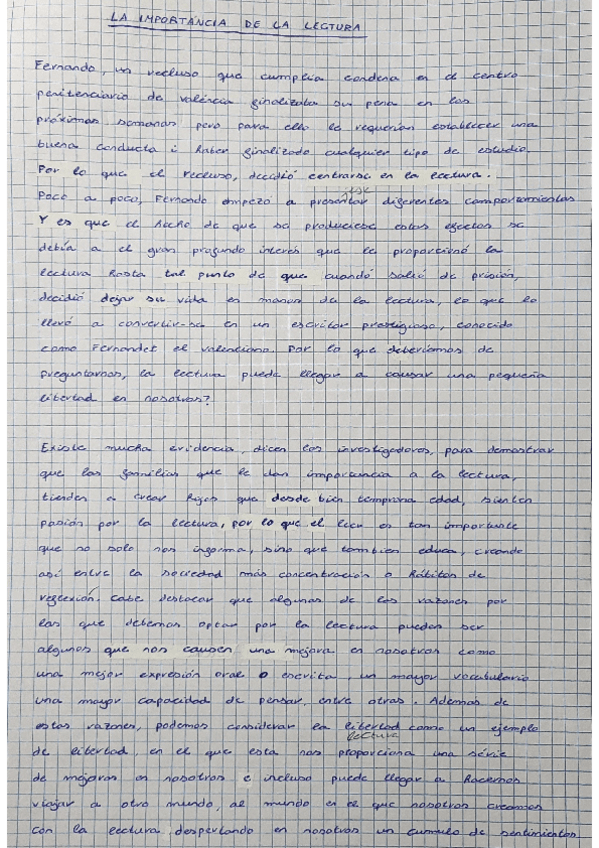 LA IMPORTANCIA DE LA LECTURA
Fernando, un recluso que cumplia condena en el centro
penitenciario de valéncia finalizaba su pena en las
próximas semanas pero para ello le requerian establecer una
buena conducta i haber finalizado cualquier tipo de estudio.
Por lo que el recluso, decidió centrarse en la lectura.
Poco a poco, Fernando empezó a presentar diferentes comportamientos
Y es que el hecho de que se produciese estos efectos se
debía a el gran profundo interés que le proporcionó la
lectura hasta tal punto de que cuando salió de prisión,
decidió dejar su vida en manos de la lectura, lo que lo
llevó a convertir-se en un escritor prestigioso, conocido
como Fernandet el valenciano. Por lo que deberiamos de
preguntarnos, la lectura puede llegar a causar una pequeña
libertad en nosotros?
Existe mucha evidencia, dicen los investigadores, para demostrar
que las familias que le dan importancia a la lectura,
tienden a crear hijos que desde bien temprana edad, sienten
pasión por la lectura, por lo que el leer es tan importante
que no solo nos informa, sino que tambien educa, creando
así entre la sociedad más concentración o hábitos de
reflexión. Cabe destacar que algunas de las razones por
las que debemos optar por la lectura pueden ser
algunos que nos causen una mejora en nosotros como
una mejor expresión oral o escrita, un mayor vocabulario
una mayor capacidad de pensar, entre otras. Ademas de
estas razones, podemos considerar la libertad como un ejemplo
lectura
de libertad, en el que esta nos proporciona una série
de mejoras en nosotros e incluso puede llegar a hacernos
viajar a otro mundo, al mundo en el que nosotros creamos
con la lectura, despertando en nosotros un cumulo de sentimientos